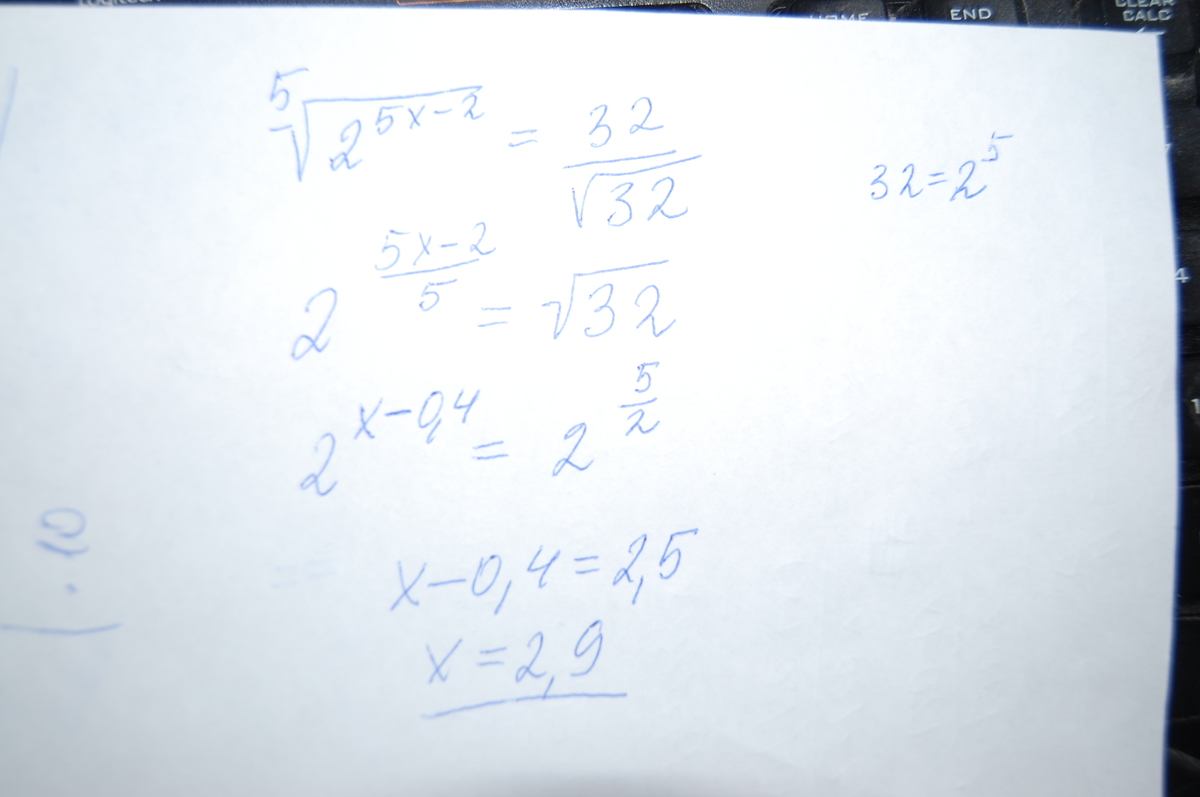 ⁵√(2^(5x-2)) = 32/√32
32=2^5
2^((5x-2)/5) = √32
2^(x-0,4) = 2^(5/2)
x-0,4=2,5
x=2,9
.10
END
CLEAR
CALC
HOME
4